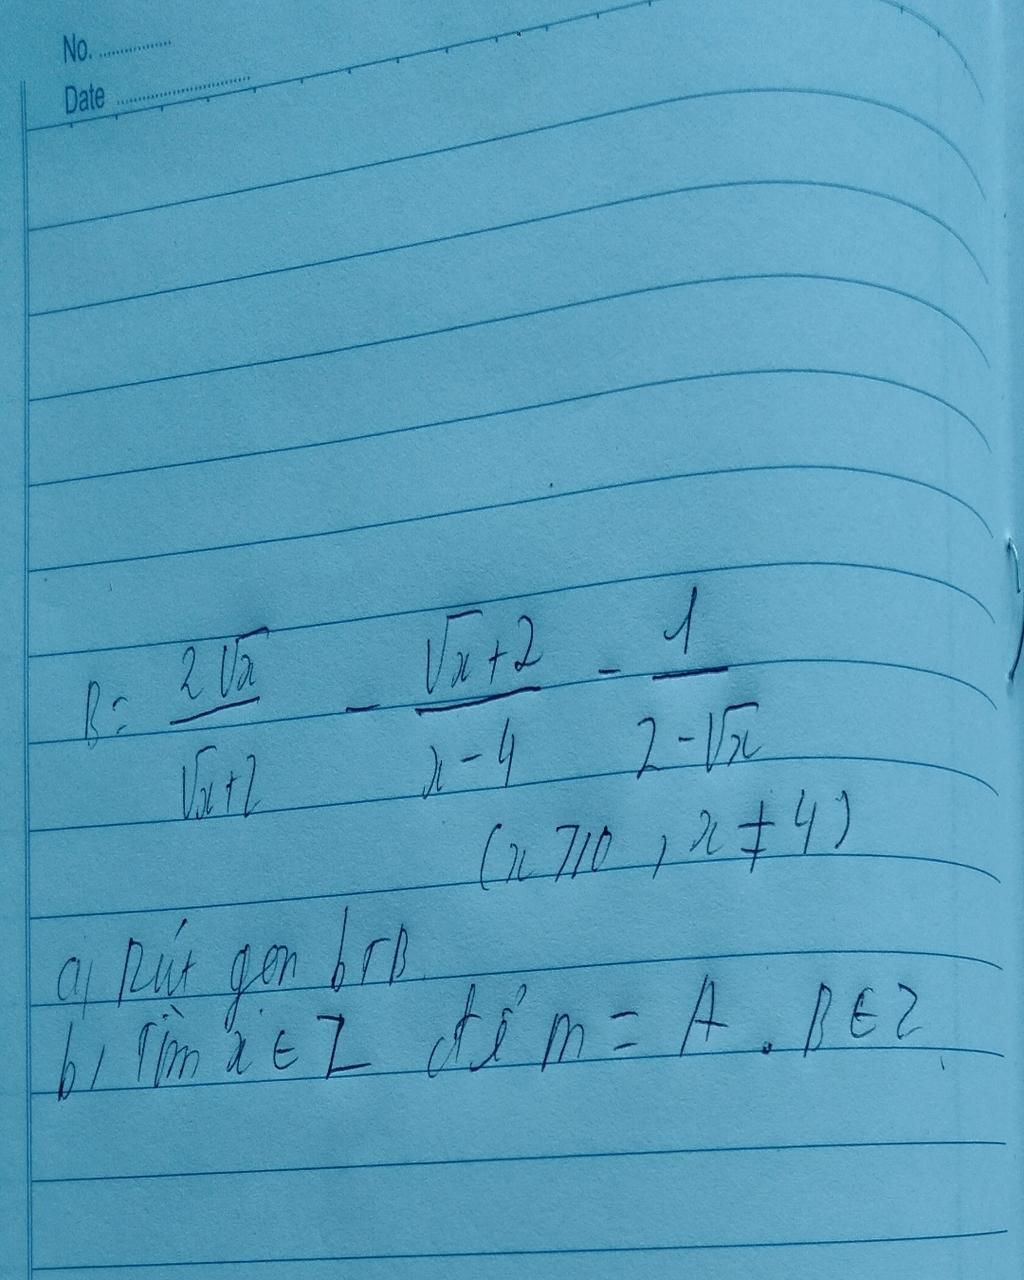 No.
Date
B = 2√x / (√x+2) - (√x+2) / (x-4) - 1 / (2-√x)
(x ⩾ 0, x ≠ 4)
a, Rút gọn btB
b, Tìm x ∈ Z để m = A . B ∈ Z